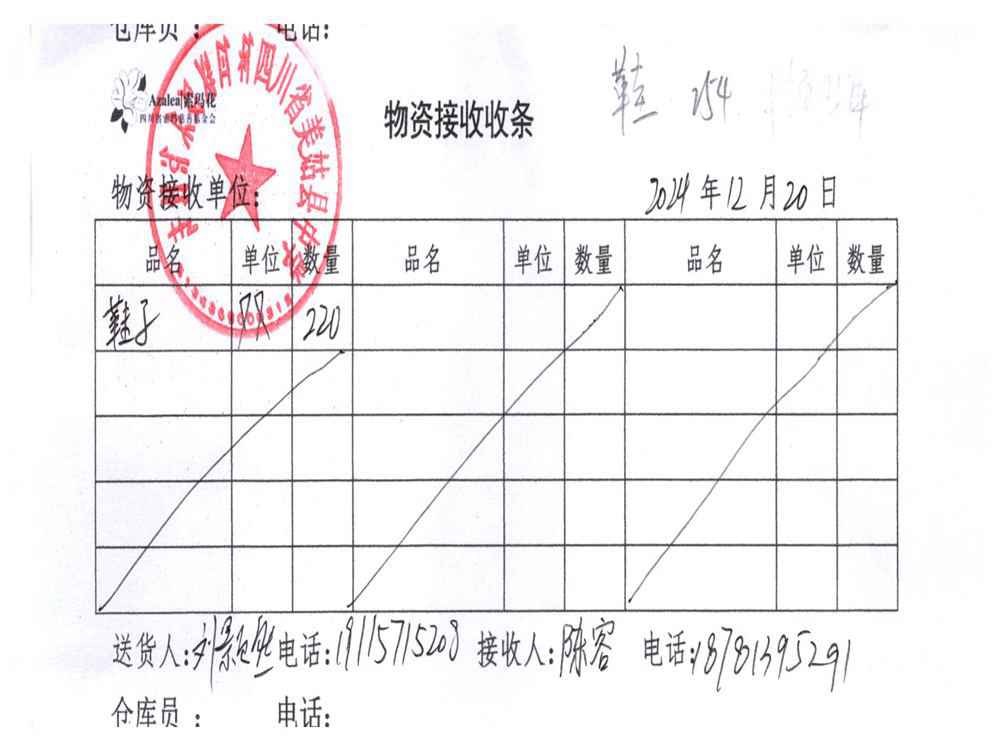 仓库员 : 电话:
Azalea|索玛花
四川省索玛慈善基金会
鞋 254
物资接收收条
四川省美姑县中学
物资接收单位: 2024年12月20日
品名 单位 数量 品名 单位 数量 品名 单位 数量
鞋子 双 220
送货人: 电话:19115715208 接收人:陈容 电话:18781395291
仓库员 : 电话: